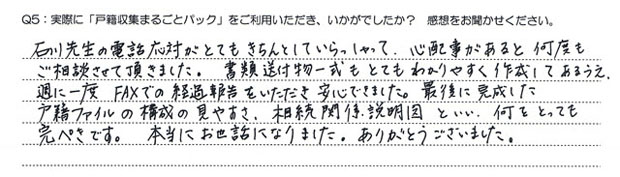 Q5：実際に「戸籍収集まるごとパック」をご利用いただき、いかがでしたか？ 感想をお聞かせください。
石川先生の電話応対がとてもきちんとしていらっしゃって、心配事があると何度も
ご相談させて頂きました。 書類送付物一式もとてもわかりやすく作成してあるうえ、
週に一度 FAXでの経過報告をいただき安心できました。最後に完成した
戸籍ファイルの構成の見やすさ、相続関係説明図といい、何をとっても
完ぺきです。 本当にお世話になりました。ありがとうございました。